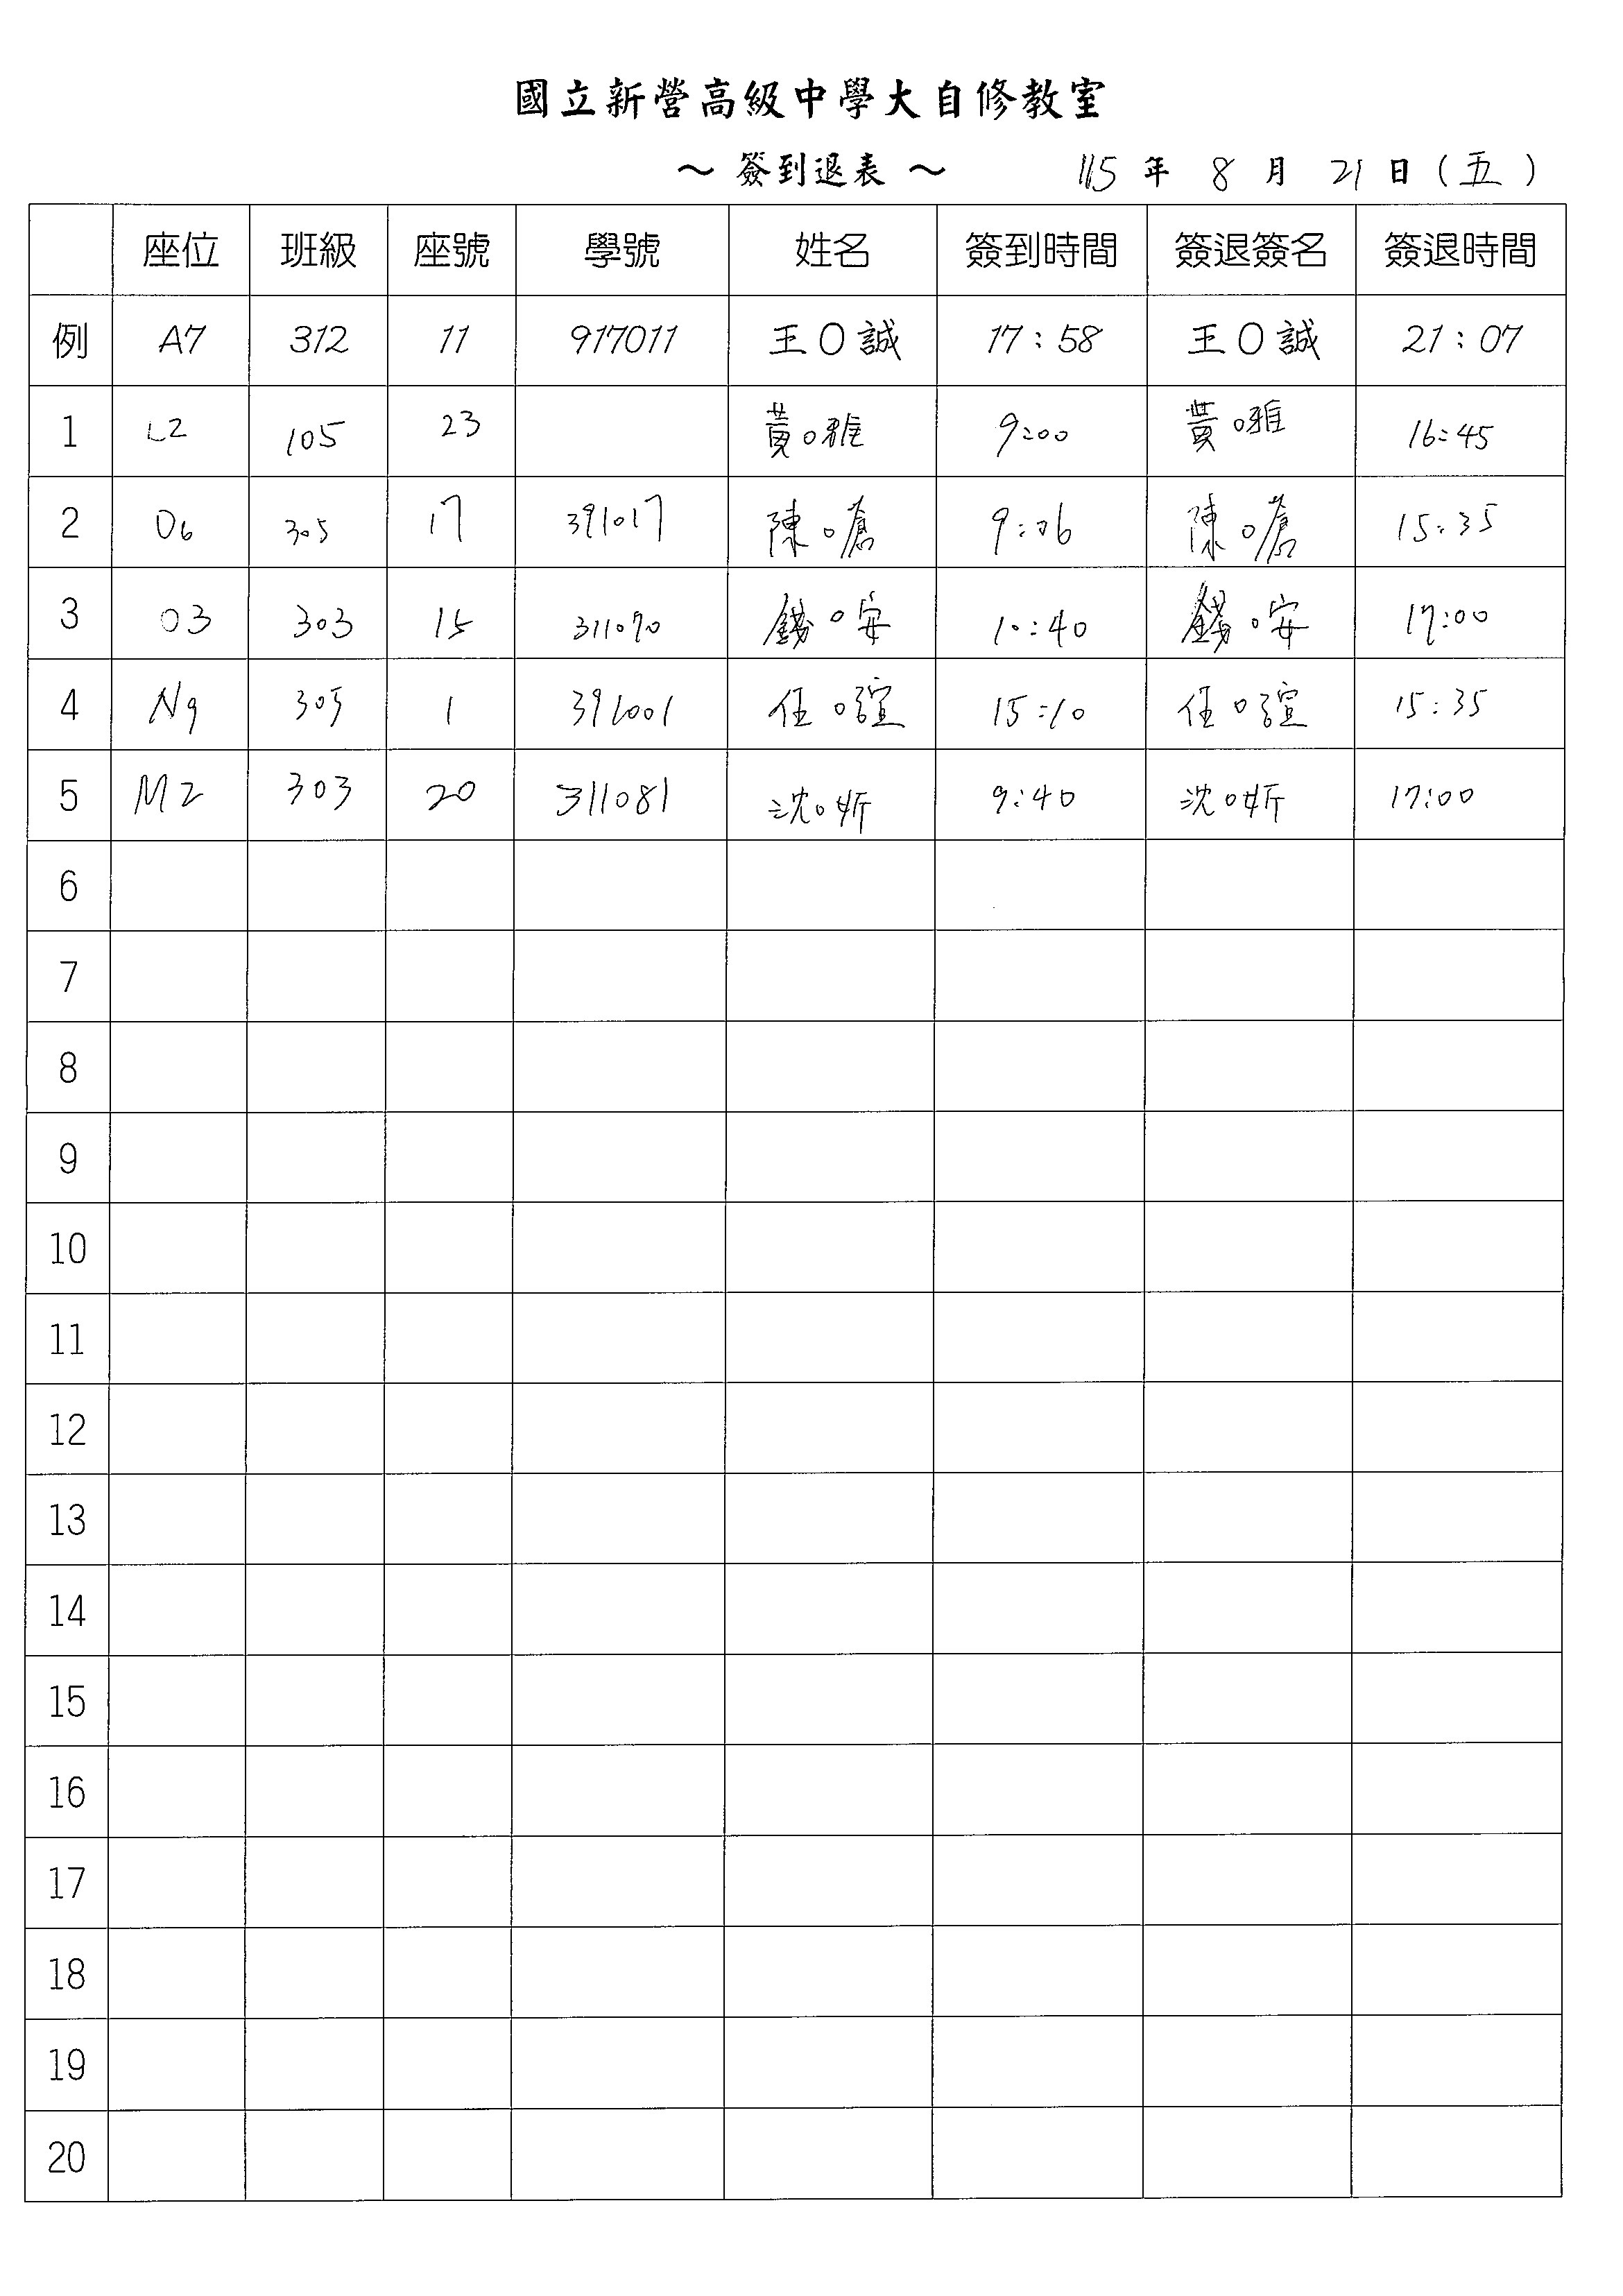 國立新營高級中學大自修教室
～ 簽到退表 ～ 115 年 8 月 21 日 ( 五 )
座位 班級 座號 學號 姓名 簽到時間 簽退簽名 簽退時間
例 A7 312 11 917011 王O誠 17:58 王O誠 21:07
1 L2 105 23 黃O雅 9:00 黃O雅 16:45
2 O6 305 17 391017 陳O 9:06 陳O 15:35
3 O3 303 15 311070 錢O安 10:40 錢O安 17:00
4 N9 305 1 391001 任O 15:10 任O 15:35
5 M2 303 20 311081 沈O妡 9:40 沈O妡 17:00
6
7
8
9
10
11
12
13
14
15
16
17
18
19
20